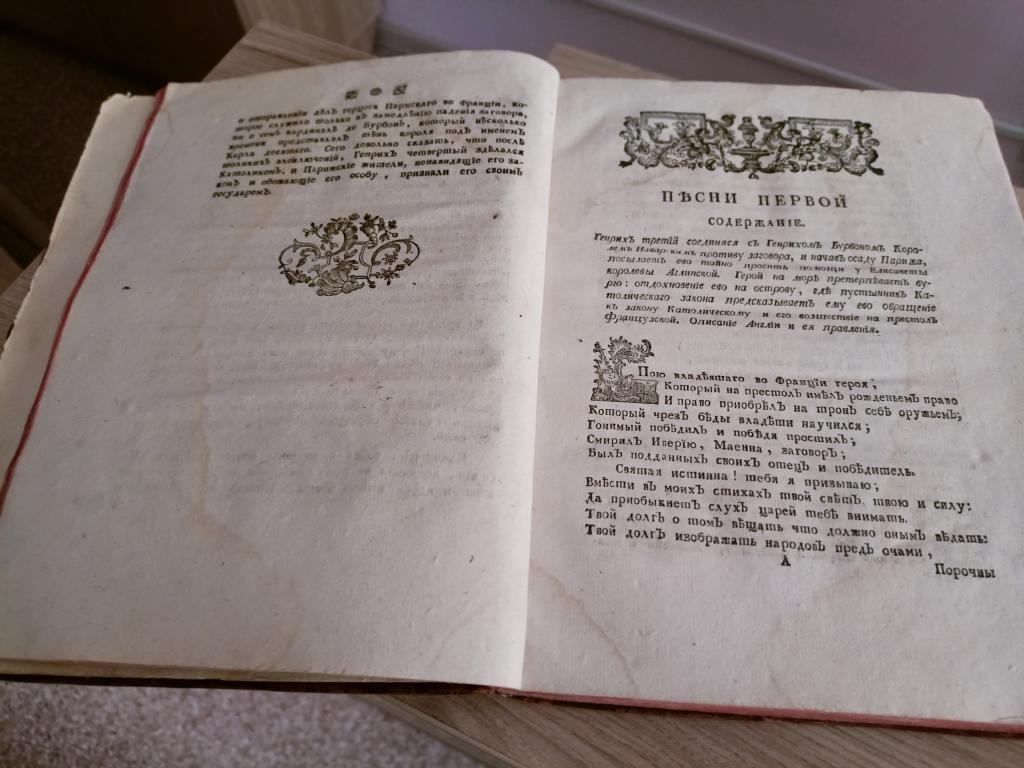 о отправленіи дѣлъ герцога Пармскаго во Франціи, ко-
торое служило только къ замедлѣнію паденія заговора,
ни о семъ кардиналѣ де Бурбонѣ, который нѣсколько
времени представлялъ тѣнь короля подъ именемъ
Карла десятаго. Сего довольно сказать, что послѣ
толикихъ злоключеній, Генрихъ четвертый здѣлался
Католикомъ, и Парижскіе жители, ненавидящіе его за-
конъ и обожающіе его особу, признали его своимъ
государемъ.
ПѢСНИ ПЕРВОЙ
СОДЕРЖАНІЕ.
Генрихъ третій соединяся съ Генрихомъ Бурбономъ Коро-
лемъ Наваркимъ противу заговора, и начавъ осаду Парижа,
посылаетъ ево тайно просить помощи у Елисаветы
королевы Аглинской. Герой на морѣ претерпѣваетъ бу-
рю: отдохновеніе ево на острову, гдѣ пустынникъ Ка-
толическаго закона предсказываетъ ему ево обращеніе
къ закону Католическому и его возшествіе на престолъ
Французской. Описаніе Англіи и ея правленія.
Пою владѣвшаго во Франціи героя;
Который на престолъ имѣлъ рожденьемъ право
И право приобрѣлъ на тронъ себѣ оружьемъ;
Который чрезъ бѣды владѣти научился;
Гонимый побѣдилъ и побѣдя простилъ;
Смирялъ Иверію, Маенна, заговоръ;
Былъ подданныхъ своихъ отецъ и побѣдитель.
Святая истинна! тебя я призываю;
Вмѣсти въ моихъ стихахъ твой свѣтъ, твою и силу:
Да приобыкнетъ слухъ царей тебѣ внимать.
Твой долгъ о томъ вѣщать что должно онымъ вѣдать:
Твой долгъ изображать народовъ предъ очами,
А
Порочны